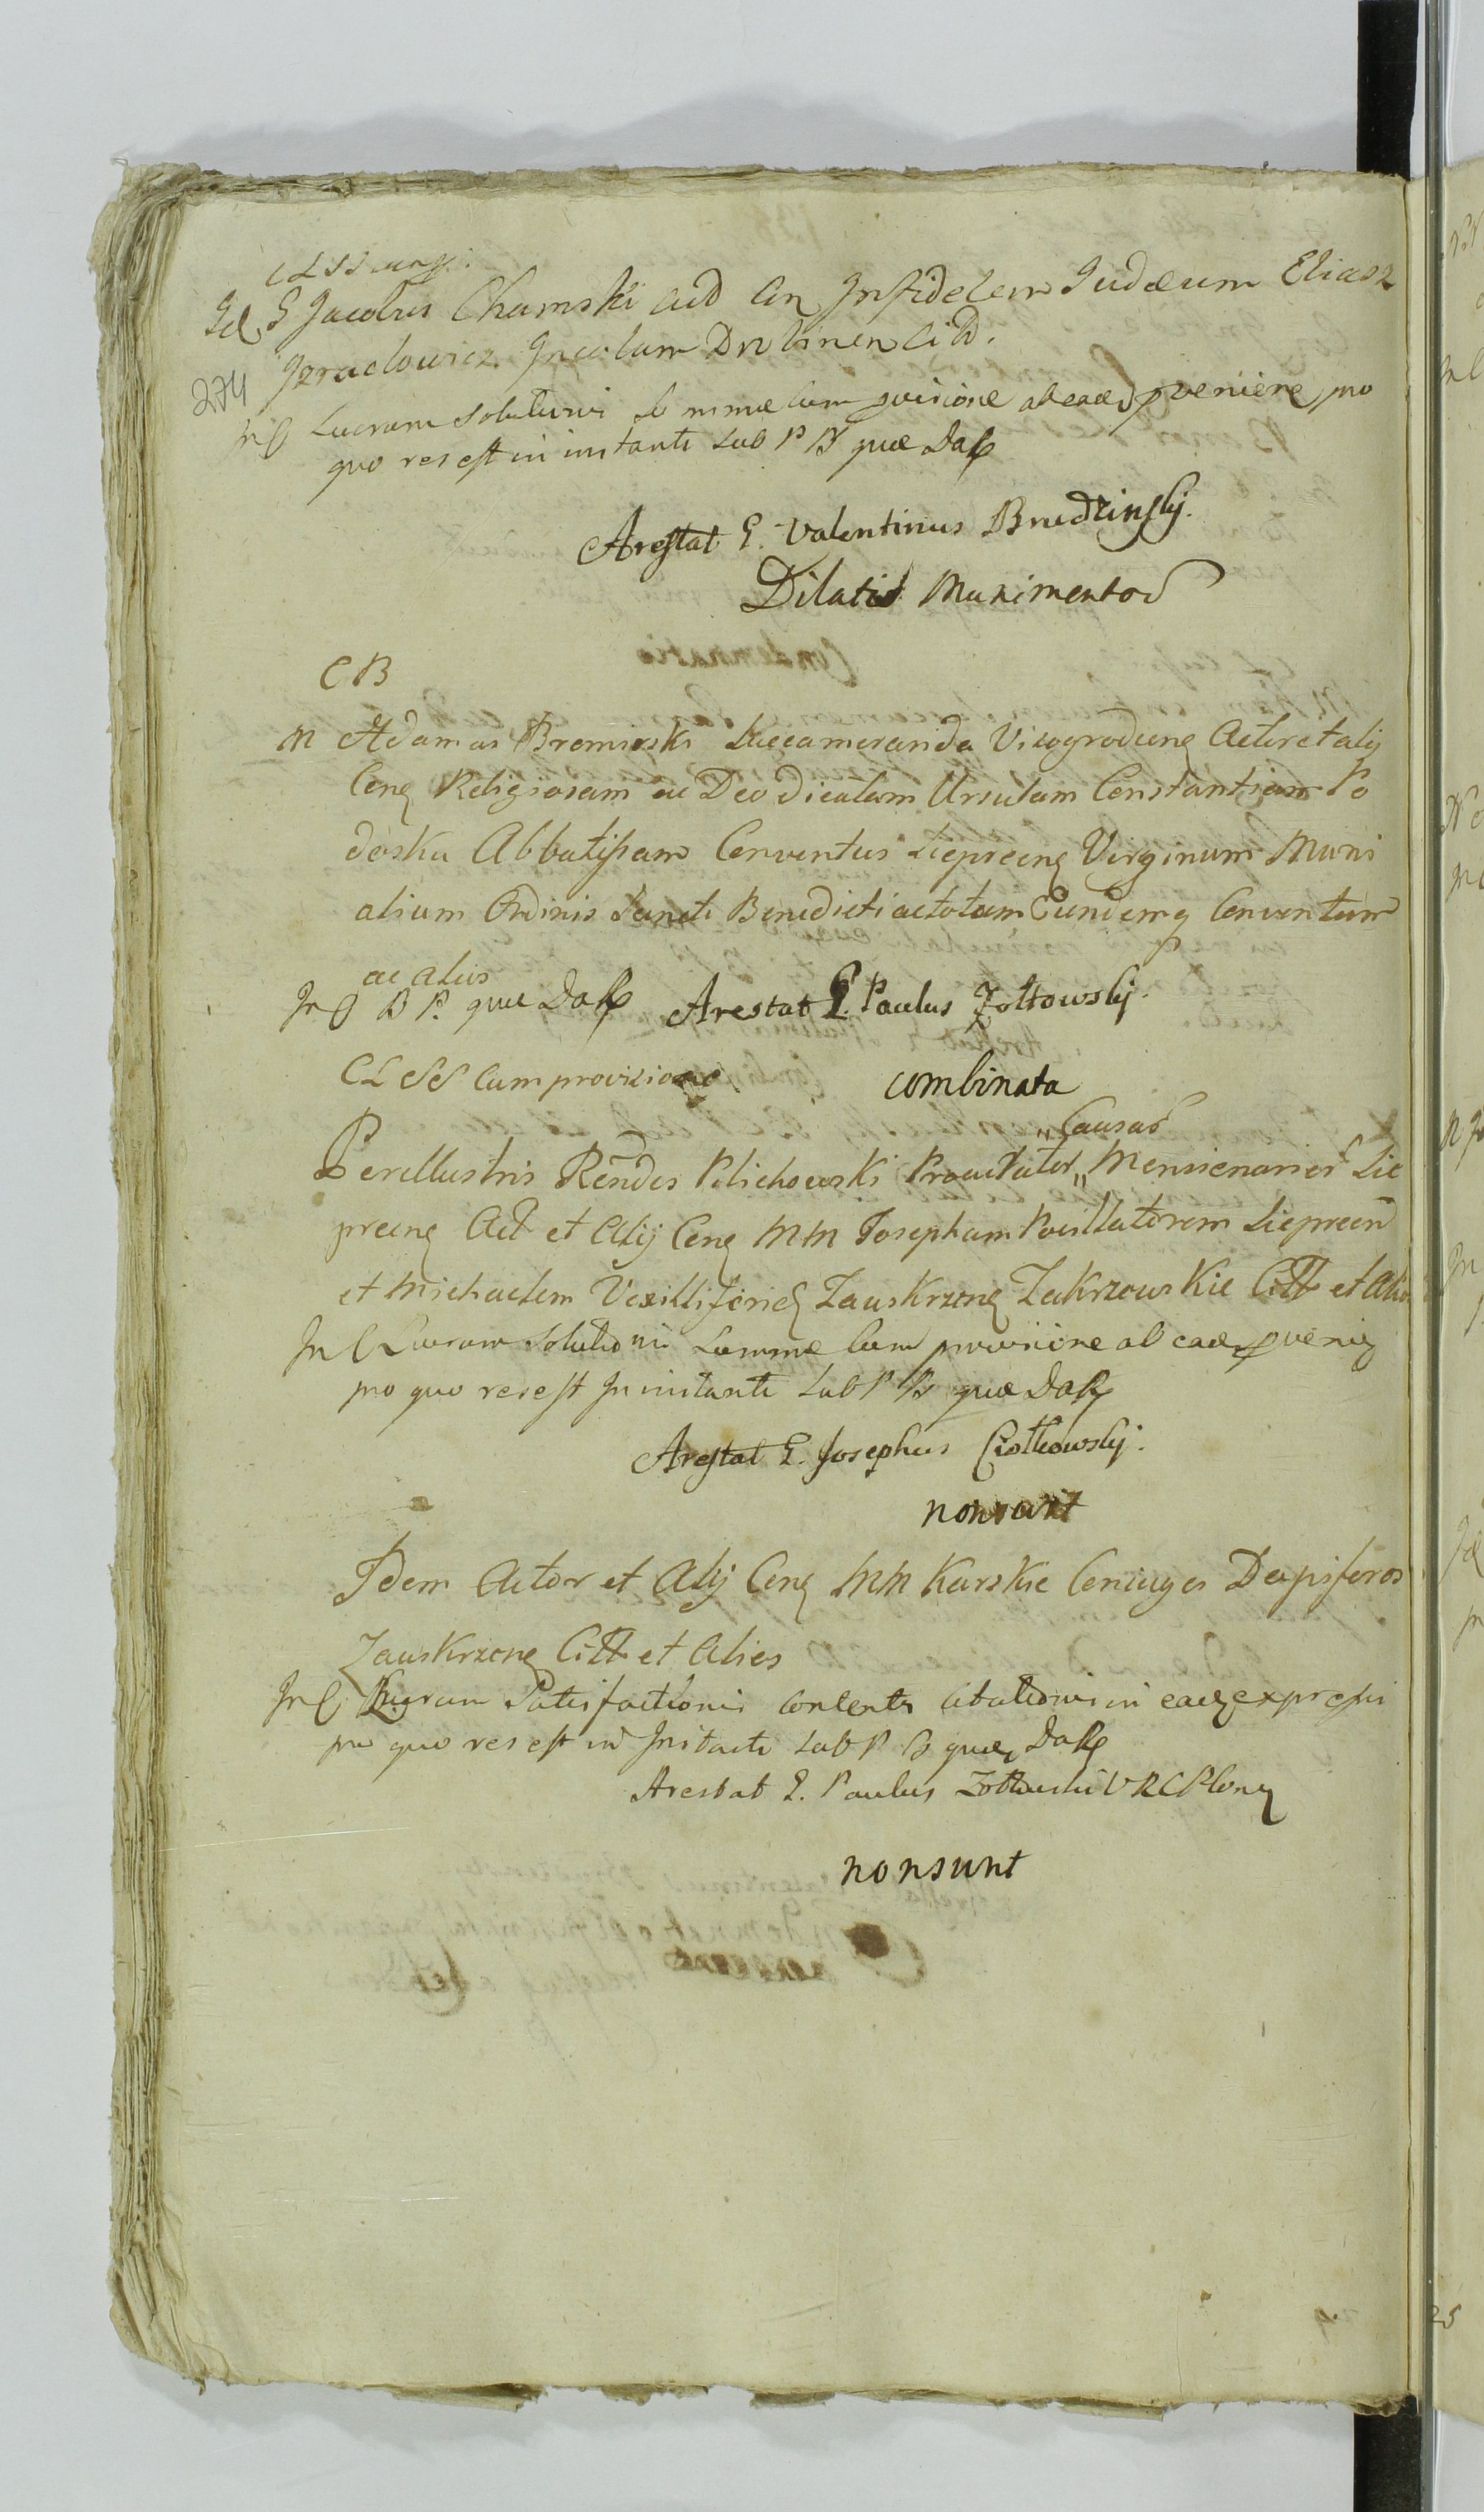 CLSS
G Jacobus Chamski Infidelem Judæum Eliasz
Jzraelowicz Incolam Drobinen Citt.
274
Lucrum Solutionis proveniene pro
quo res est in instanti sub P B quæ Daße
Arestat G. Valentinus Brudzinskj.
Dilatio Munimentor
CB
M Adamus Bromirski Succamerarida Visogrodieng Actor et alij
Cong Religiosam ac Deo Dicatam Ursulam Constantiam Po
doska Abbatißam Conventus Siepreceng Virginum Moni
alium Ordinis Sancti Benedicti ac totum Eundemq Conventum
ac alios
B P. quæ Daße Arestat G. Paulus Zołtowskj.
CLSS cum provizione combinata
„Causar
Perillustris Rendus Plichowski Procurator „ Mensionarior Sie
preceng Act et Alij Cong MM Josephum Pocillatorem Siepreen
et Michaelem Vexilliferid Zauskrzeng Zakrzewskie Citt et Alios
Lucrum Solutionis Summæ cum provisione ab eade proveniez
pro quo res est In instanti sub P B quæ Daße
Arestat G. Josephus Ciołkowskj.
non sunt
Idem Actor et Alij Cong MM Karskie Coniuges Dapiferos
Zauskrzeng Citt et Alios
Lucrum Satisfactionis contentis Citationis in eadz expreßis
pro quo res est in Instanti sub P B quæ Daße
Arestat G. Paulus Zołtowski VRCPlong
non sunt